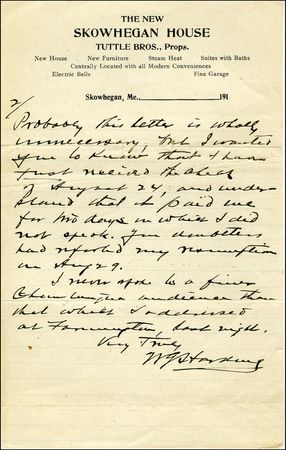 THE NEW
SKOWHEGAN HOUSE
TUTTLE BROS., Props.
New House New Furniture Steam Heat Suites with Baths
Centrally Located with all Modern Conveniences
Electric Bells Fine Garage
Skowhegan, Me. 191
2/
Probably this letter is wholly
unnecessary, but I wanted
you to know that I have
just received the check
of August 24, and under
stand that it paid me
for two days in which I did
not speak. You doubtless
had reported my resumption
on Aug 29.
I never spoke to a finer
Chautauqua audience than
that which I addressed
at Farmington, last night.
Very Truly,
W G Harding